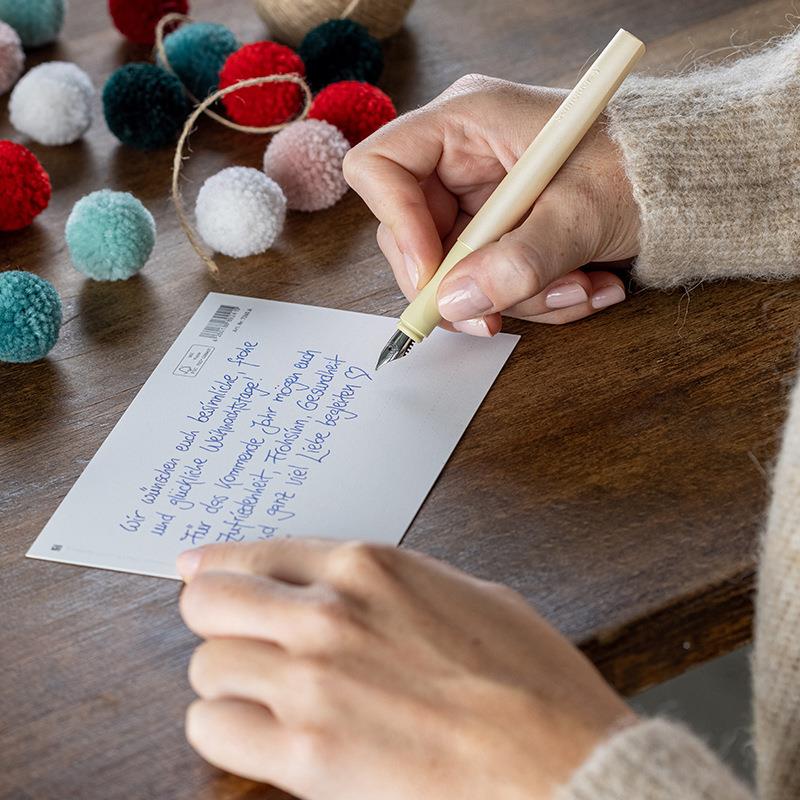 Wir wünschen euch besinnliche, frohe
und glückliche Weihnachtstage!
Für das kommende Jahr mögen euch
Zufriedenheit, Frohsinn, Gesundheit
nd ganz viel Liebe begleiten ♡